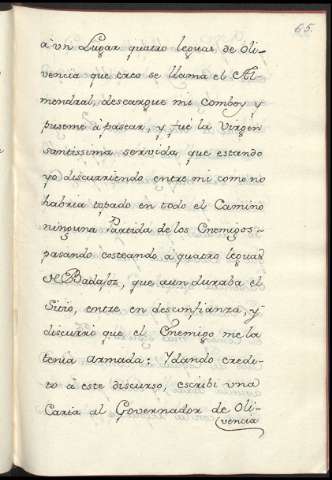 65.
à vn Lugar quatro leguas de Oli-
vencia que creo se llama el Al-
mendral, descargue mi comboy y
puseme à pasear, y fuè la Virgen
santissima servida que estando
yo discurriendo entre mi como no
habia topado en todo el Camino
ninguna Partida de los Enemigos -
pasando costeando à quatro leguas
de Badajoz, que aun duraba el
Sitio, entre en desconfianza, y
discurrì que el Enemigo me la
tenia armada: Ydando credi-
to à este discurso, escribì vna
Carta al Governador de Oli-
vencia